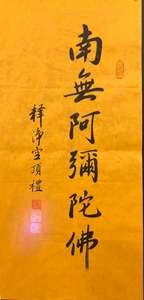 南無阿彌陀佛
釋淨空頂禮